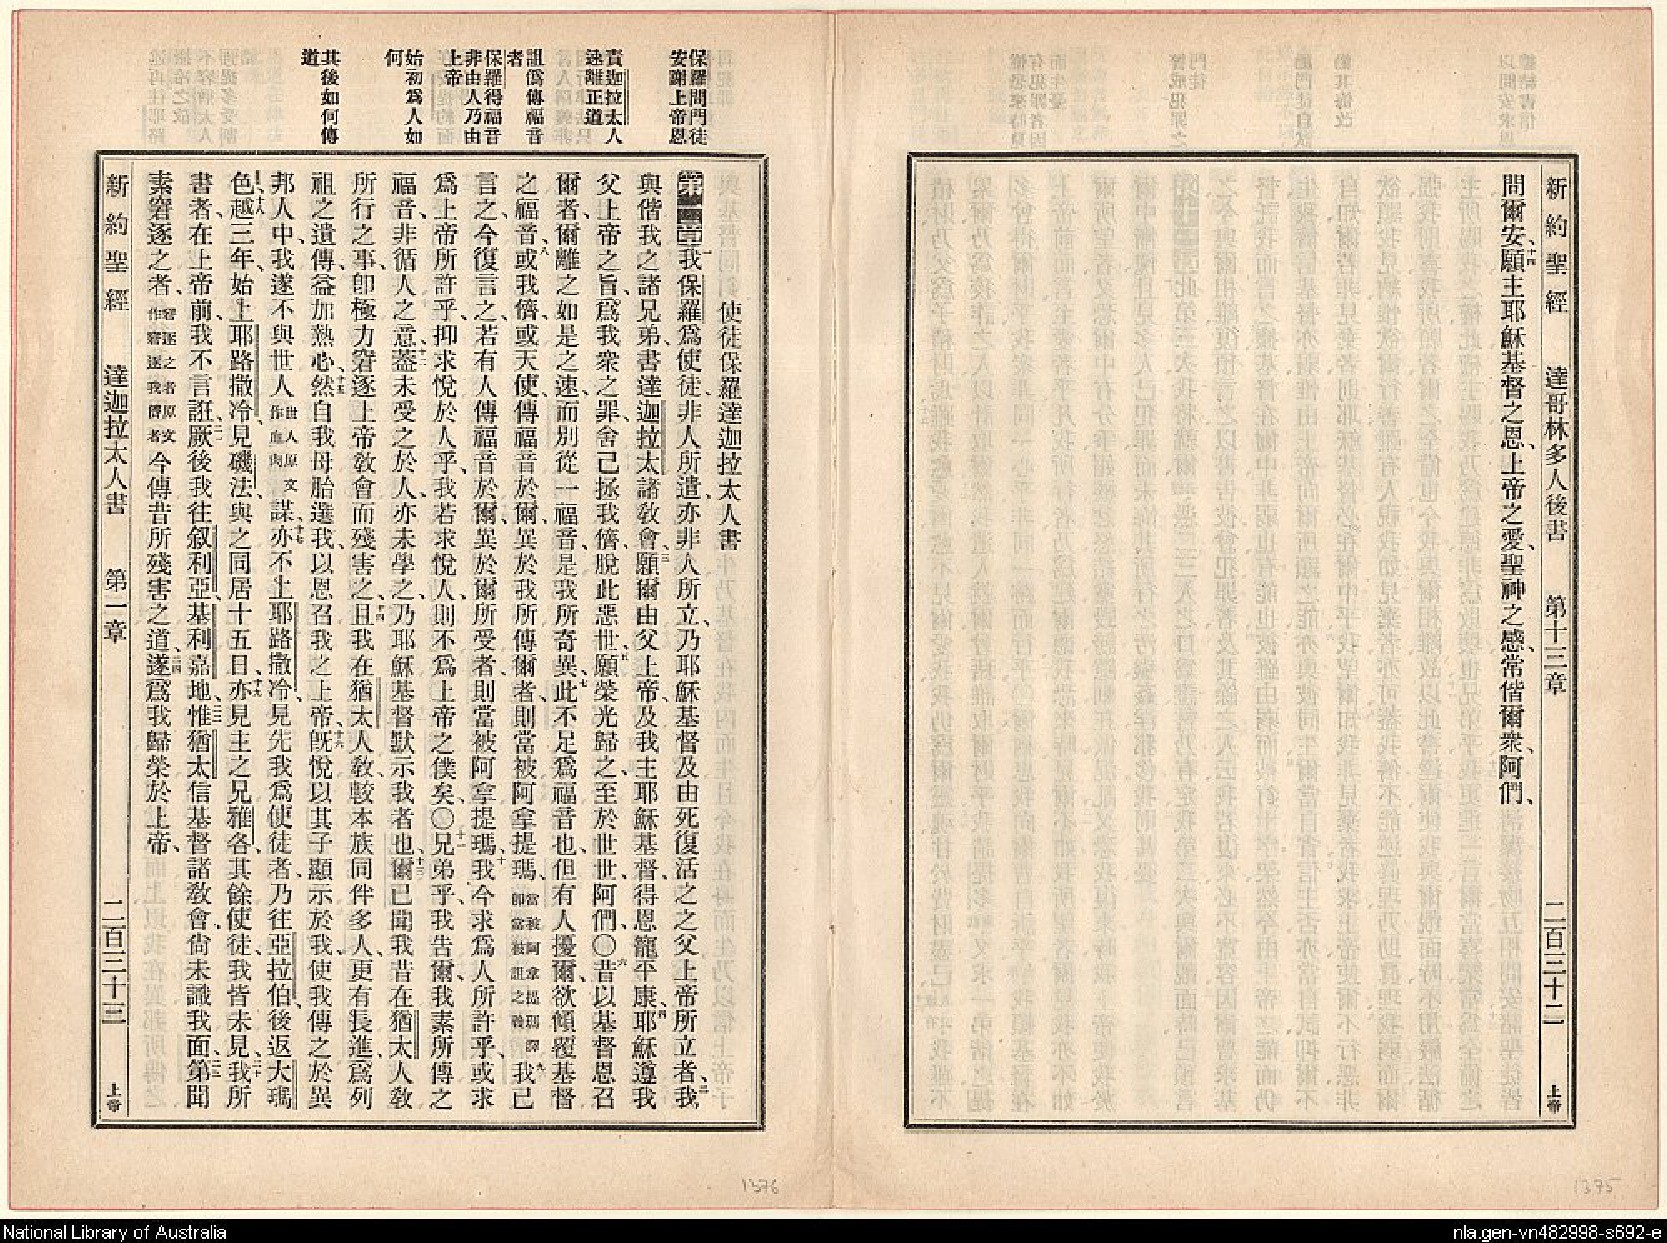 新約聖經 達哥林多人後書 第十三章 二百三十二 上帝
問爾安、十四願主耶穌基督之恩、上帝之愛、聖神之感、常偕爾衆、阿們、
保羅問門徒
安謝上帝恩
責迦拉太人
速離正道
詛僞傳福音
者
保羅得福音
非由人乃由
上帝
始初爲人如
何
其後如何傳
道
使徒保羅達迦拉太人書
第一章一我保羅爲使徒、非人所遣、亦非人所立、乃耶穌基督、及由死復活之之父上帝所立者、二我
與偕我之諸兄弟、書達迦拉太諸敎會、三願爾由父上帝、及我主耶穌基督、得恩寵平康、四耶穌遵我
父上帝之旨、爲我衆之罪、舍己拯我儕、脫此惡世、五願榮光歸之、至於世世、阿們、〇六昔以基督恩召
爾者、爾離之如是之速、而別從一福音、是我所奇異、七此不足爲福音也、但有人擾爾、欲傾覆基督
之福音、八或我儕、或天使、傳福音於爾、異於我所傳爾者、則當被阿拿提瑪、當被阿拿提瑪譯卽當被詛之義九我已
言之、今復言之、若有人傳福音於爾、異於爾所受者、則當被阿拿提瑪、十我今求爲人所許乎、或求
爲上帝所許乎、抑求悅於人乎、我若求悅人、則不爲上帝之僕矣、〇十一兄弟乎、我告爾、我素所傳之
福音、非循人之意、十二蓋未受之於人、亦未學之、乃耶穌基督默示我者也、十三爾已聞我昔在猶太人敎
所行之事、卽極力窘逐上帝敎會而殘害之、十四且我在猶太人敎、較本族同伴多人、更有長進、爲列
祖之遺傳、益加熱心、十五然自我母胎選我、以恩召我之上帝、十六旣悅以其子顯示於我、使我傳之於異
邦人中、我遂不與世人世人原文作血肉謀、十七亦不上耶路撒冷、見先我爲使徒者、乃往亞拉伯、後返大瑪
色、十八越三年、始上耶路撒冷、見磯法、與之同居十五日、十九亦見主之兄雅各、其餘使徒、我皆未見、二十我所
書者、在上帝前、我不言誑、二一厥後我往叙利亞基利嘉地、二二惟猶太信基督諸敎會、尙未識我面、二三第聞
素窘逐之者、窘逐之者原文作窘逐我儕者今傳昔所殘害之道、二四遂爲我歸榮於上帝、
新約聖經 達迦拉太人書 第一章 二百三十三 上帝
1376
1375
National Library of Australia
nla.gen-vn482998-s692-e